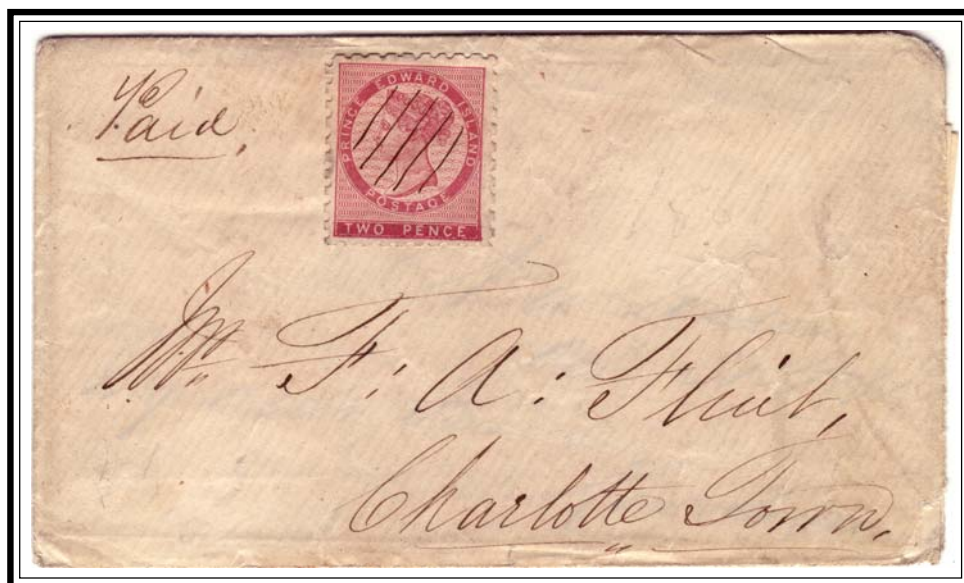 Paid,
PRINCE EDWARD ISLAND
POSTAGE
TWO PENCE
Mr. F: A: Flint,
Charlotte Town,